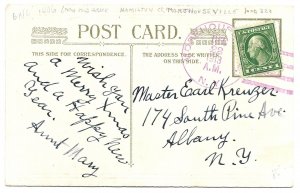 POST CARD.
THIS SIDE FOR CORRESPONDENCE.
THE ADDRESS TO BE WRITTEN ON THIS SIDE
Wish you
a Merry Xmas
and a Happy New
Year.
Aunt Mary
A.M.
N.Y.
Master Earl Kreuzer
174 South Pine Ave
Albany.
N.Y.